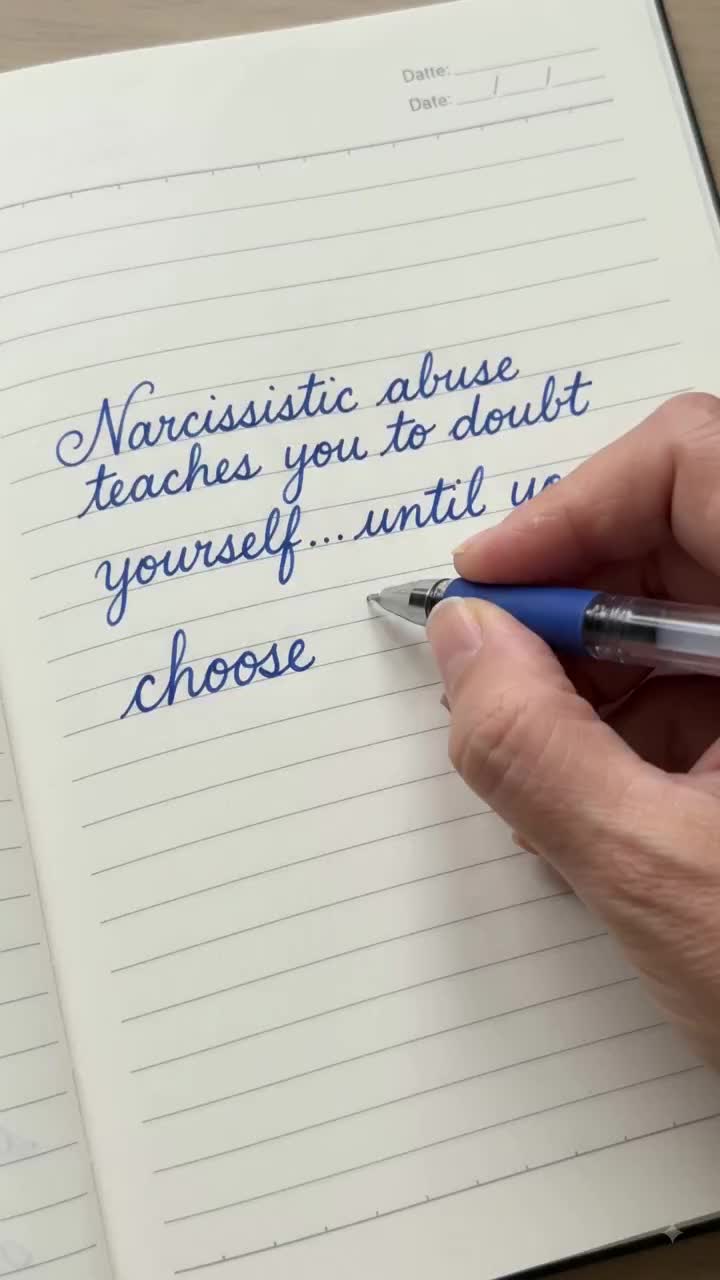 Datte:
Date: / /
Narcissistic abuse
teaches you to doubt
yourself... until
choose